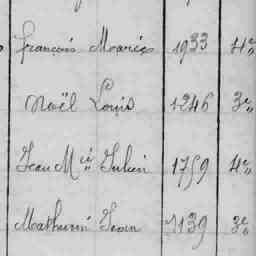 françois Marie 1933 4e
Noël Louis 1246 3e
Jean Mie Julien 1759 4e
Mathurin Jean 1139 3e